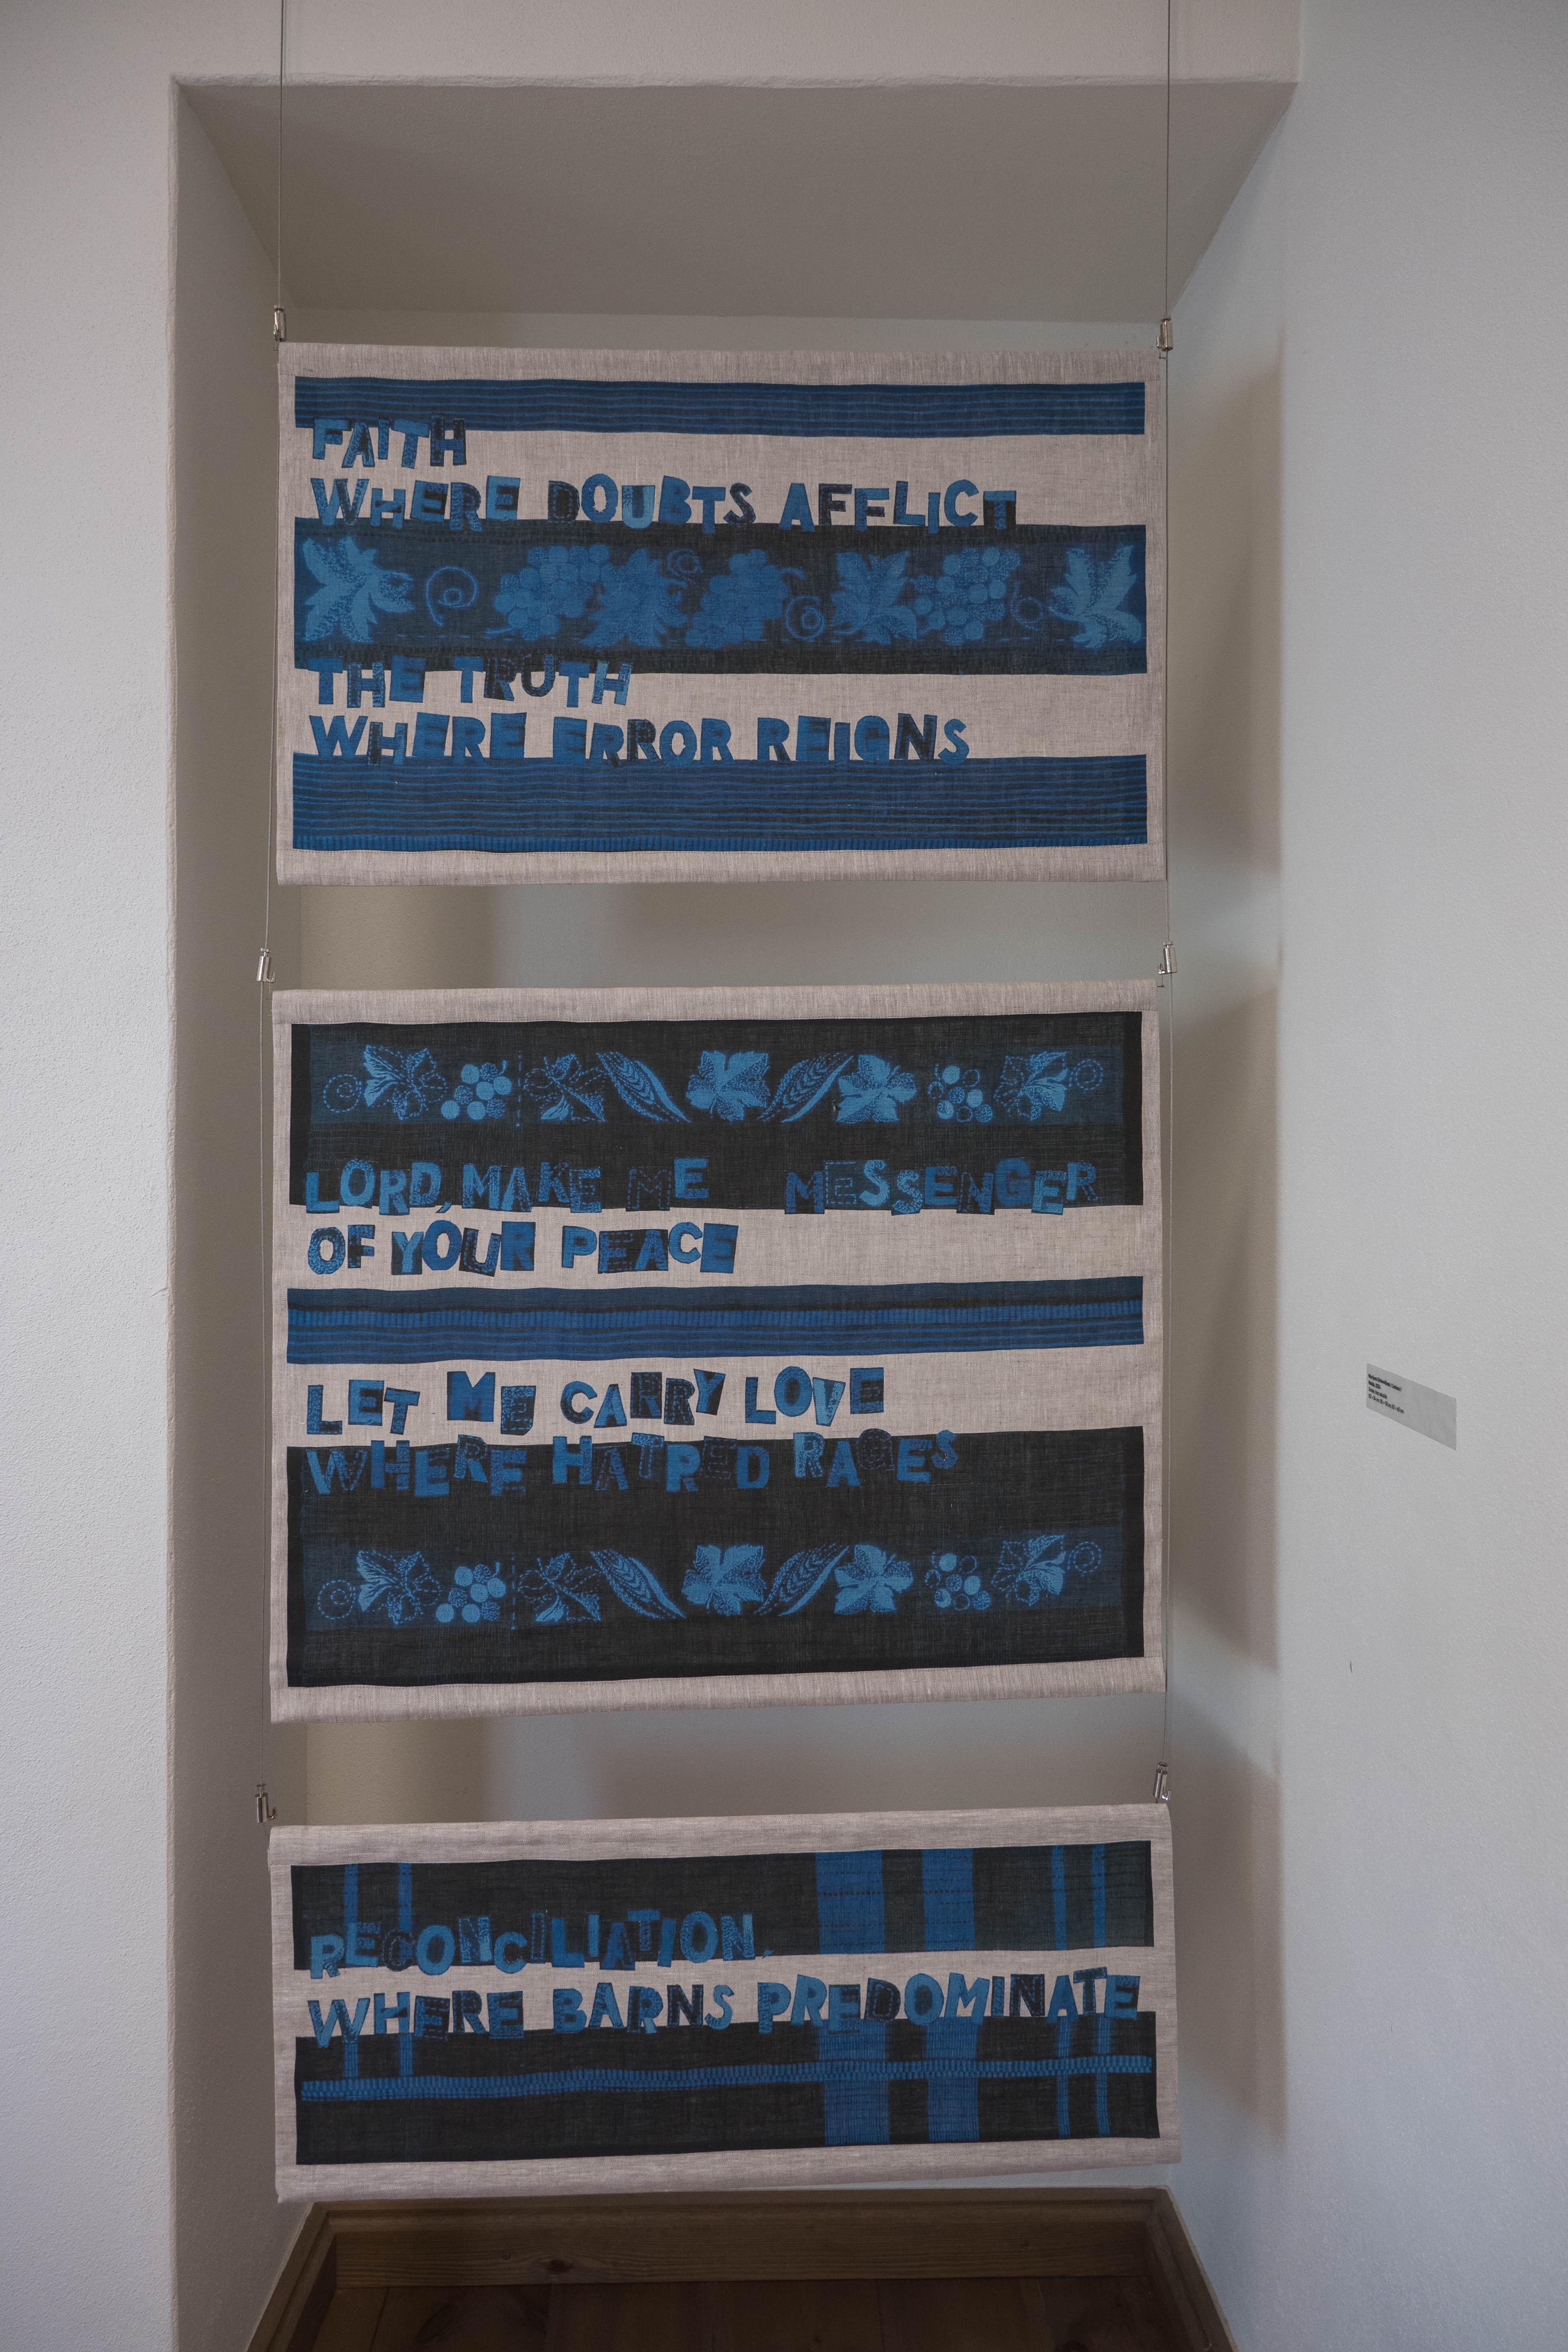 FAITH
WHERE DOUBTS AFFLICT
THE TRUTH
WHERE ERROR REIGNS
LORD, MAKE ME MESSENGER
OF YOUR PEACE
LET ME CARRY LOVE
WHERE HATRED RAGES
RECONCILIATION,
WHERE BARNS PREDOMINATE